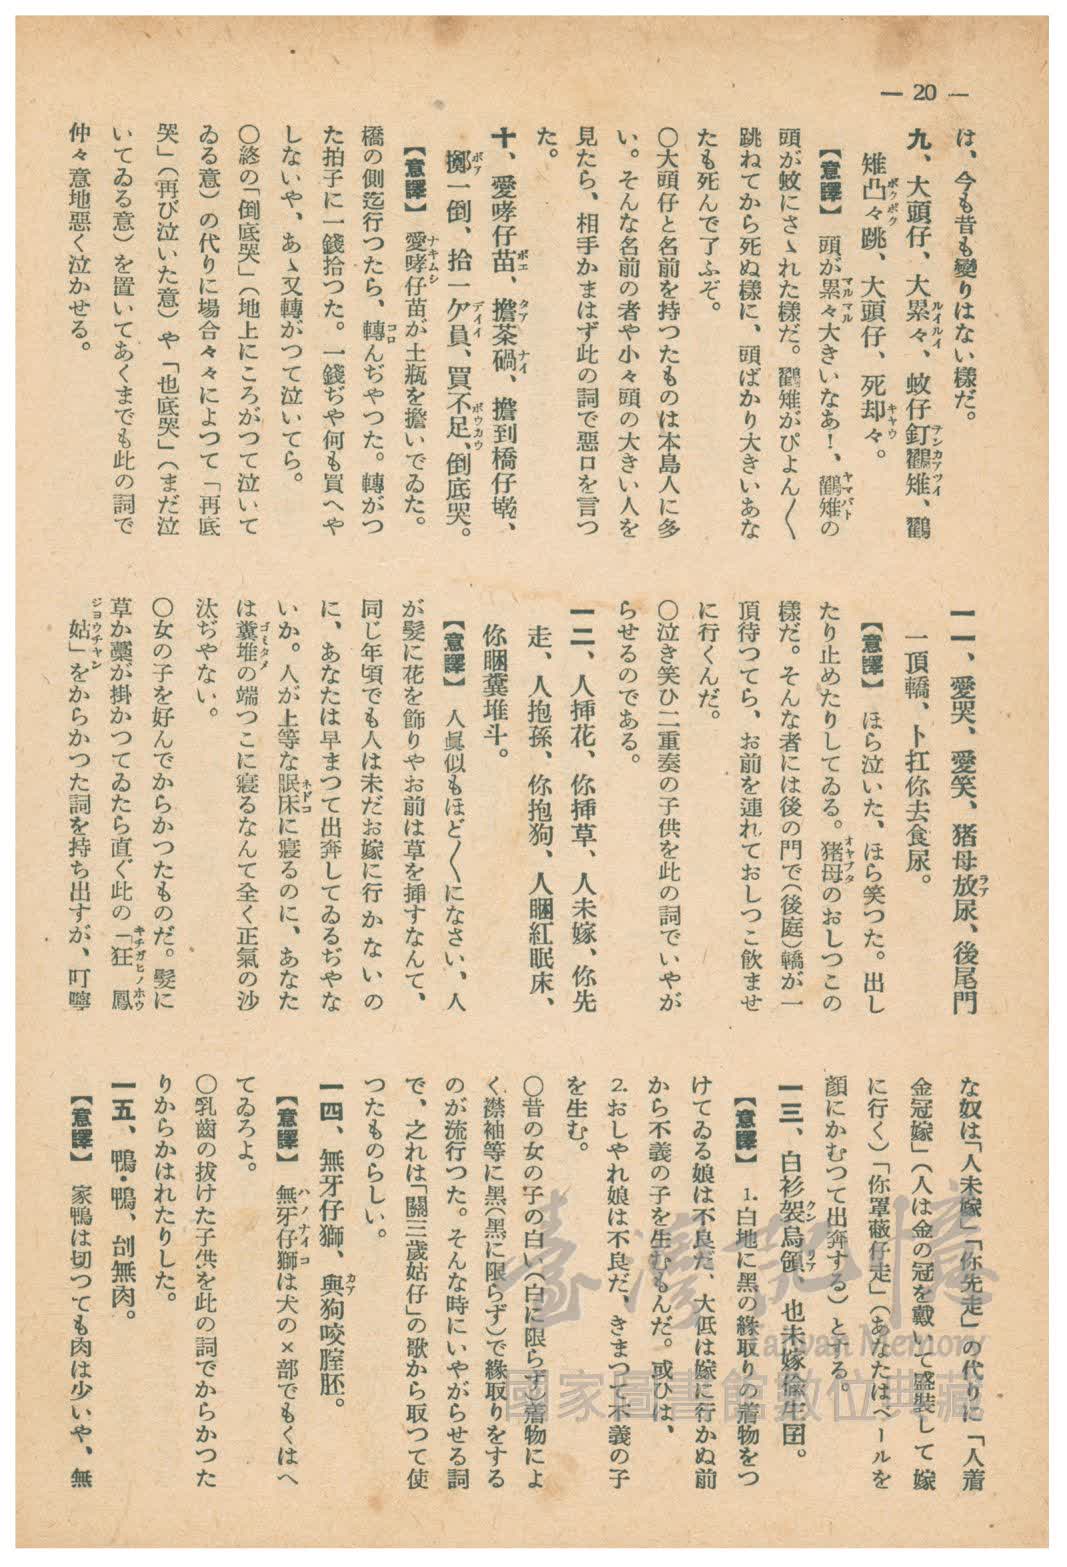 — 20 —
は、今も昔も變りはない樣だ。
九、大頭仔、大累々、蚊仔釘鸛雉、鸛
雉凸々跳、大頭仔、死却々。
【意譯】 頭が累々大きいなあ！、鸛雉の
頭が蚊にさゝれた樣だ。鸛雉がぴよん〱
跳ねてから死ぬ樣に、頭ばかり大きいあな
たも死んで了ふぞ。
〇大頭仔と名前を持つたものは本島人に多
い。そんな名前の者や小々頭の大きい人を
見たら、相手かまはず此の詞で惡口を言つ
た。
十、愛哮仔苗、擔茶鍋、擔到橋仔墘、
擲一倒、拾一欠員、買不足、倒底哭。
【意譯】 愛哮仔苗が土瓶を擔いでゐた。
橋の側迄行つたら、轉んぢやつた。轉がつ
た拍子に一錢拾つた。一錢ぢや何も買へや
しないや、あゝ又轉がつて泣いてら。
〇終の「倒底哭」（地上にころがつて泣いて
ゐる意）の代りに場合々々によつて「再底
哭」（再び泣いた意）や「也底哭」（まだ泣
いてゐる意）を置いてあくまでも此の詞で
仲々意地惡く泣かせる。
一一、愛哭、愛笑、猪母放尿、後尾門
一頂轎、卜扛你去食尿。
【意譯】 ほら泣いた、ほら笑つた。出し
たり止めたりしてゐる。猪母のおしつこの
樣だ。そんな者には後の門で（後庭）轎が一
頂待つてら、お前を連れておしつこ飲ませ
に行くんだ。
〇泣き笑ひ二重奏の子供を此の詞でいやが
らせるのである。
一二、人挿花、你挿草、人未嫁、你先
走、人抱孫、你抱狗、人睏紅眠床、
你睏糞堆斗。
【意譯】 人眞似もほど〱になさい、人
が髮に花を飾りやお前は草を挿すなんて、
同じ年頃でも人は未だお嫁に行かないの
に、あなたは早まつて出奔してゐるぢやな
いか。人が上等な眠床に寢るのに、あなた
は糞堆の端つこに寢るなんて全く正氣の沙
汰ぢやない。
〇女の子を好んでからかつたものだ。髮に
草か藁が掛かつてゐたら直ぐ此の「狂鳳
姑」をからかつた詞を持ち出すが、叮嚀
な奴は「人未嫁」「你先走」の代りに「人着
金冠嫁」（人は金の冠を戴いて盛裝して嫁
に行く）「你罩蔽仔走」（あなたはベールを
顏にかむつて出奔する）とする。
一三、白衫袈烏領、也未嫁偸生囝。
【意譯】 1.白地に黑の緣取りの着物をつ
けてゐる娘は不良だ、大低は嫁に行かぬ前
から不義の子を生むもんだ。或ひは、
2.おしやれ娘は不良だ、きまつて不義の子
を生む。
〇昔の女の子の白い（白に限らず）着物によ
く襟袖等に黑（黑に限らず）で緣取りをする
のが流行つた。そんな時にいやがらせる詞
で、之れは「關三歲姑仔」の歌から取つて使
つたものらしい。
一四、無牙仔獅、與狗咬膣胚。
【意譯】 無牙仔獅は犬の×部でもくはへ
てゐろよ。
〇乳齒の拔けた子供を此の詞でからかつた
りからかはれたりした。
一五、鴨・鴨、刣無肉。
【意譯】 家鴨は切つても肉は少いや、無
臺灣記憶
Taiwan Memory
國家圖書館數位典藏